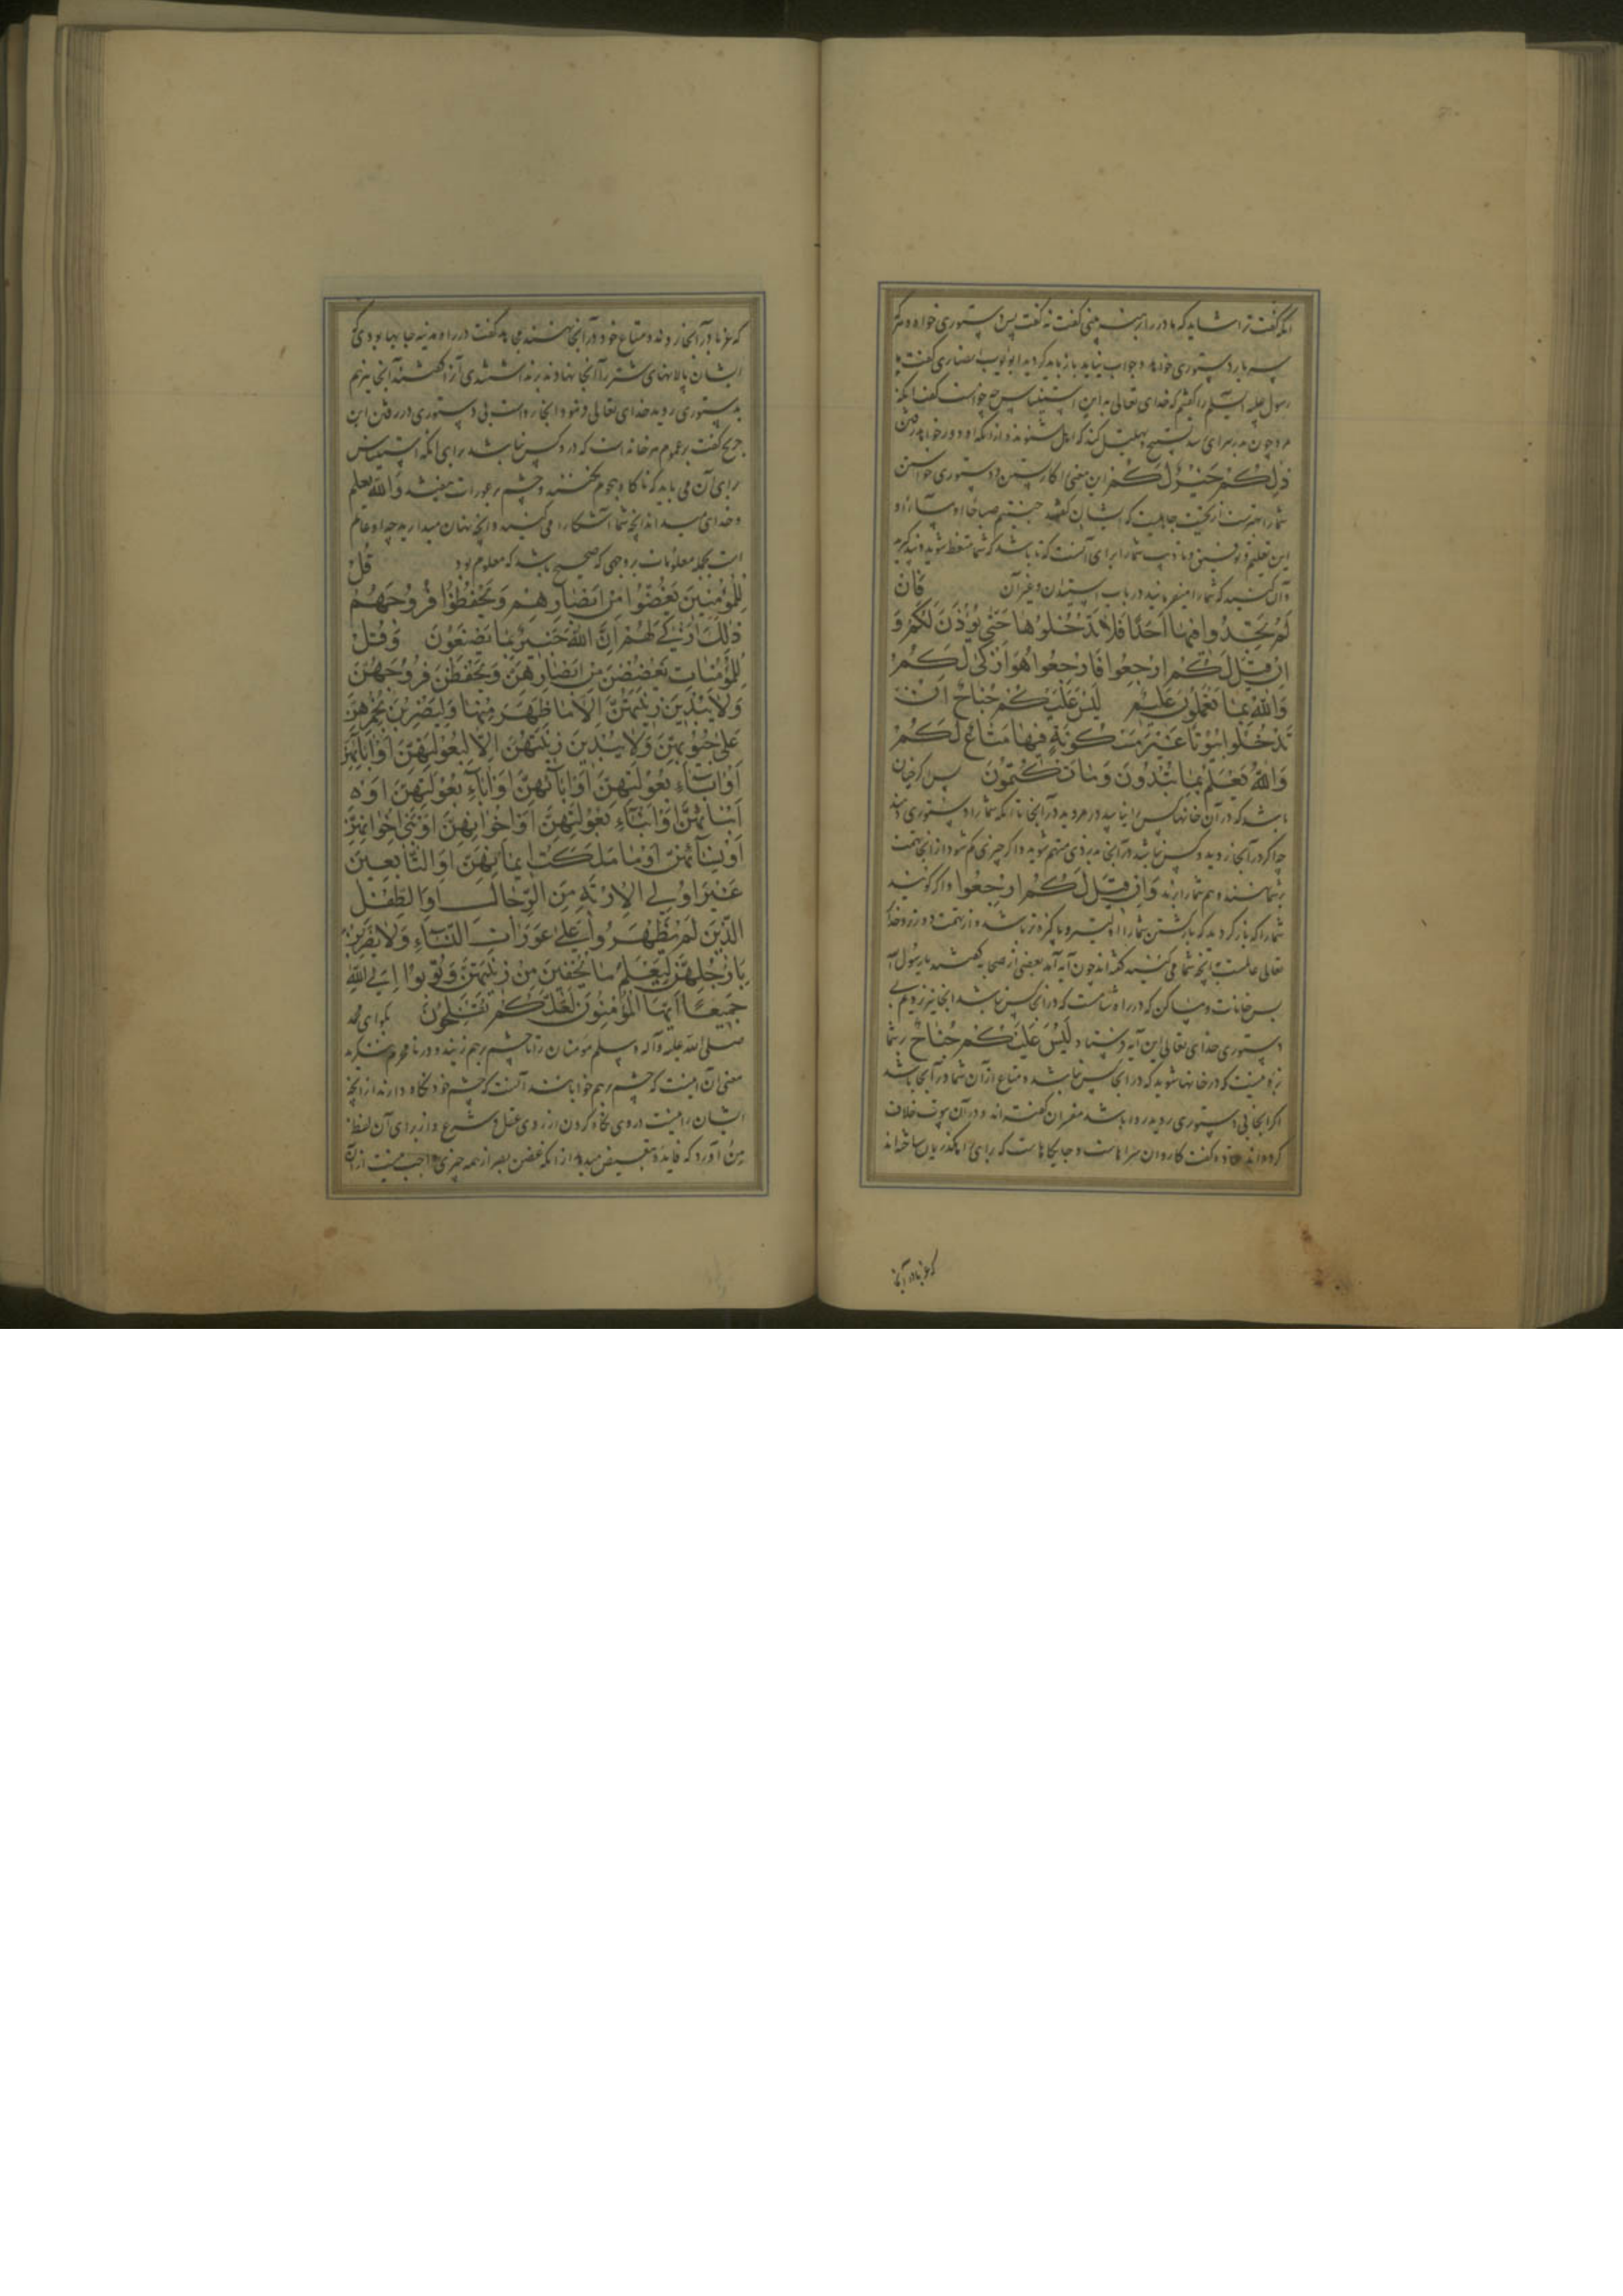 آنکه گفت ترا شاید که مادر را برهنه بینی گفت نه گفت پس دستوری خواه و مرد
سه بار دستوری خواهد و جواب نیاید باز باید گردید ابو ایوب انصاری گفت ما
رسول علیه السلم را گفتیم که خدای تعالی به این استیناس چه خواست گفت آنکه
مرد چون بدر سرای رسد تسبیح و تهلیل کند که اهل بشنوند و ازآنکه او در خواهد رفتن
ذٰلِكُمْ خَيْرٌ لَكُمْ این معنی کار بستن و دستوری خواستن
شما را بهتر است از تحیت جاهلیت که ایشان گفتند حییتم صباحا و مساء و
این تعلیم و تادیب شما را برای آنست که تا باشد که شما متعظ شوید و پند گیرید
و آن کنید که شما را میفرمایند در باب استیذان و غیر آن فَاِنْ
لَمْ تَجِدُوا فِيهَا اَحَدًا فَلَا تَدْخُلُوهَا حَتّٰى يُؤْذَنَ لَكُمْ وَ
اِنْ قِيلَ لَكُمُ ارْجِعُوا فَارْجِعُوا هُوَ اَزْكٰى لَكُمْ
وَاللّٰهُ بِمَا تَعْمَلُونَ عَلِيمٌ لَيْسَ عَلَيْكُمْ جُنَاحٌ اَنْ
تَدْخُلُوا بُيُوتًا غَيْرَ مَسْكُونَةٍ فِيهَا مَتَاعٌ لَكُمْ
وَاللّٰهُ يَعْلَمُ مَا تُبْدُونَ وَمَا تَكْتُمُونَ پس اگر چنان
باشد که در آن خانها کس را نیابید در مروید در آنجا تا آنکه شما را دستوری دهند
چه اگر در آنجا روید و کس نباشد در آنجا بدزدی متهم شوید و اگر چیزی گم شود از آنجا تهمت
بشما نهند و هم شما را برند وَاِنْ قِيلَ لَكُمُ ارْجِعُوا و اگر گویند
شما را که باز گردید که بازگشتن شما را اولیتر و پاکیزه‌تر باشد و از تهمت دورتر و خدا
تعالی عالمست بآنچه شما می‌کنید گفته‌اند چون آیه آمد بعضی از صحابه گفتند یا رسول الله
پس خانات و مساکن که در راه شامست که در آنجا کس نباشد آنجا نیز نرویم بی
دستوری خدای تعالی این آیه فرستاد لَيْسَ عَلَيْكُمْ جُنَاحٌ بر شما
بزه نیست که در خانها شوید که در آنجا کس نباشد و متاع از آن شما در آنجا باشد
اگر آنجا بی دستوری روید روا باشد مفسران گفته‌اند و در آن بیوت خلاف
کرده‌اند قتاده گفت کاروان سراهاست و جایگاهاست که برای راهگذریان ساخته‌اند
که عزبا در آنجا
که عزبا در آنجا روند و متاع خود در آنجا نهند مجاهد گفت در راه مدینه جایها بودی که
ایشان پالانهای شتر را آنجا نهادندی گفتند آنجا نیز هم
بدستوری روید خدای تعالی فرمود آنجا رواست بی دستوری در رفتن ابن
جریج گفت بر عموم هر خانه است که در او کس نباشد برای آنکه استیناس
برای آن می باید که ناگاه هجوم نکنند و چشم بر عورات نیفتد وَاللّٰهُ يَعْلَمُ
و خدای میداند آنچه شما آشکارا می‌کنید و آنچه پنهان میدارید چه او عالم
است بجمله معلومات بر وجهی که صحیح باشد که معلوم بود قُلْ
لِلْمُؤْمِنِينَ يَغُضُّوا مِنْ اَبْصَارِهِمْ وَيَحْفَظُوا فُرُوجَهُمْ
ذٰلِكَ اَزْكٰى لَهُمْ اِنَّ اللّٰهَ خَبِيرٌ بِمَا يَصْنَعُونَ وَقُلْ
لِلْمُؤْمِنَاتِ يَغْضُضْنَ مِنْ اَبْصَارِهِنَّ وَيَحْفَظْنَ فُرُوجَهُنَّ
وَلَا يُبْدِينَ زِينَتَهُنَّ اِلَّا مَا ظَهَرَ مِنْهَا وَلْيَضْرِبْنَ بِخُمُرِهِنَّ
عَلٰى جُيُوبِهِنَّ وَلَا يُبْدِينَ زِينَتَهُنَّ اِلَّا لِبُعُولَتِهِنَّ اَوْ اٰبَائِهِنَّ
اَوْ اٰبَاءِ بُعُولَتِهِنَّ اَوْ اٰبَائِهِنَّ اَوْ اٰبَاءِ بُعُولَتِهِنَّ اَوْ
اَبْنَائِهِنَّ اَوْ اَبْنَاءِ بُعُولَتِهِنَّ اَوْ اِخْوَانِهِنَّ اَوْ بَنِي اِخْوَانِهِنَّ
اَوْ نِسَائِهِنَّ اَوْ مَا مَلَكَتْ اَيْمَانُهُنَّ اَوِ التَّابِعِينَ
غَيْرِ اُولِي الْاِرْبَةِ مِنَ الرِّجَالِ اَوِ الطِّفْلِ
الَّذِينَ لَمْ يَظْهَرُوا عَلٰى عَوْرَاتِ النِّسَاءِ وَلَا يَضْرِبْنَ
بِاَرْجُلِهِنَّ لِيُعْلَمَ مَا يُخْفِينَ مِنْ زِينَتِهِنَّ وَتُوبُوا اِلَى اللّٰهِ
جَمِيعًا اَيُّهَا الْمُؤْمِنُونَ لَعَلَّكُمْ تُفْلِحُونَ بگو ای محمد
صلی الله علیه و آله و سلم مومنان را تا چشم بر هم زنند و در نامحرم ننگرند
معنی آن نیست که چشم بر هم خوابانند آنست که چشم خود نگاه دارند از آنچه
ایشان را نیست در وی نگاه کردن از روی عقل و شرع و از برای آن لفظ
مِنْ آورد که فایده تبعیض میدهد از آنکه غض بصر از همه چیزی واجب نیست از آن